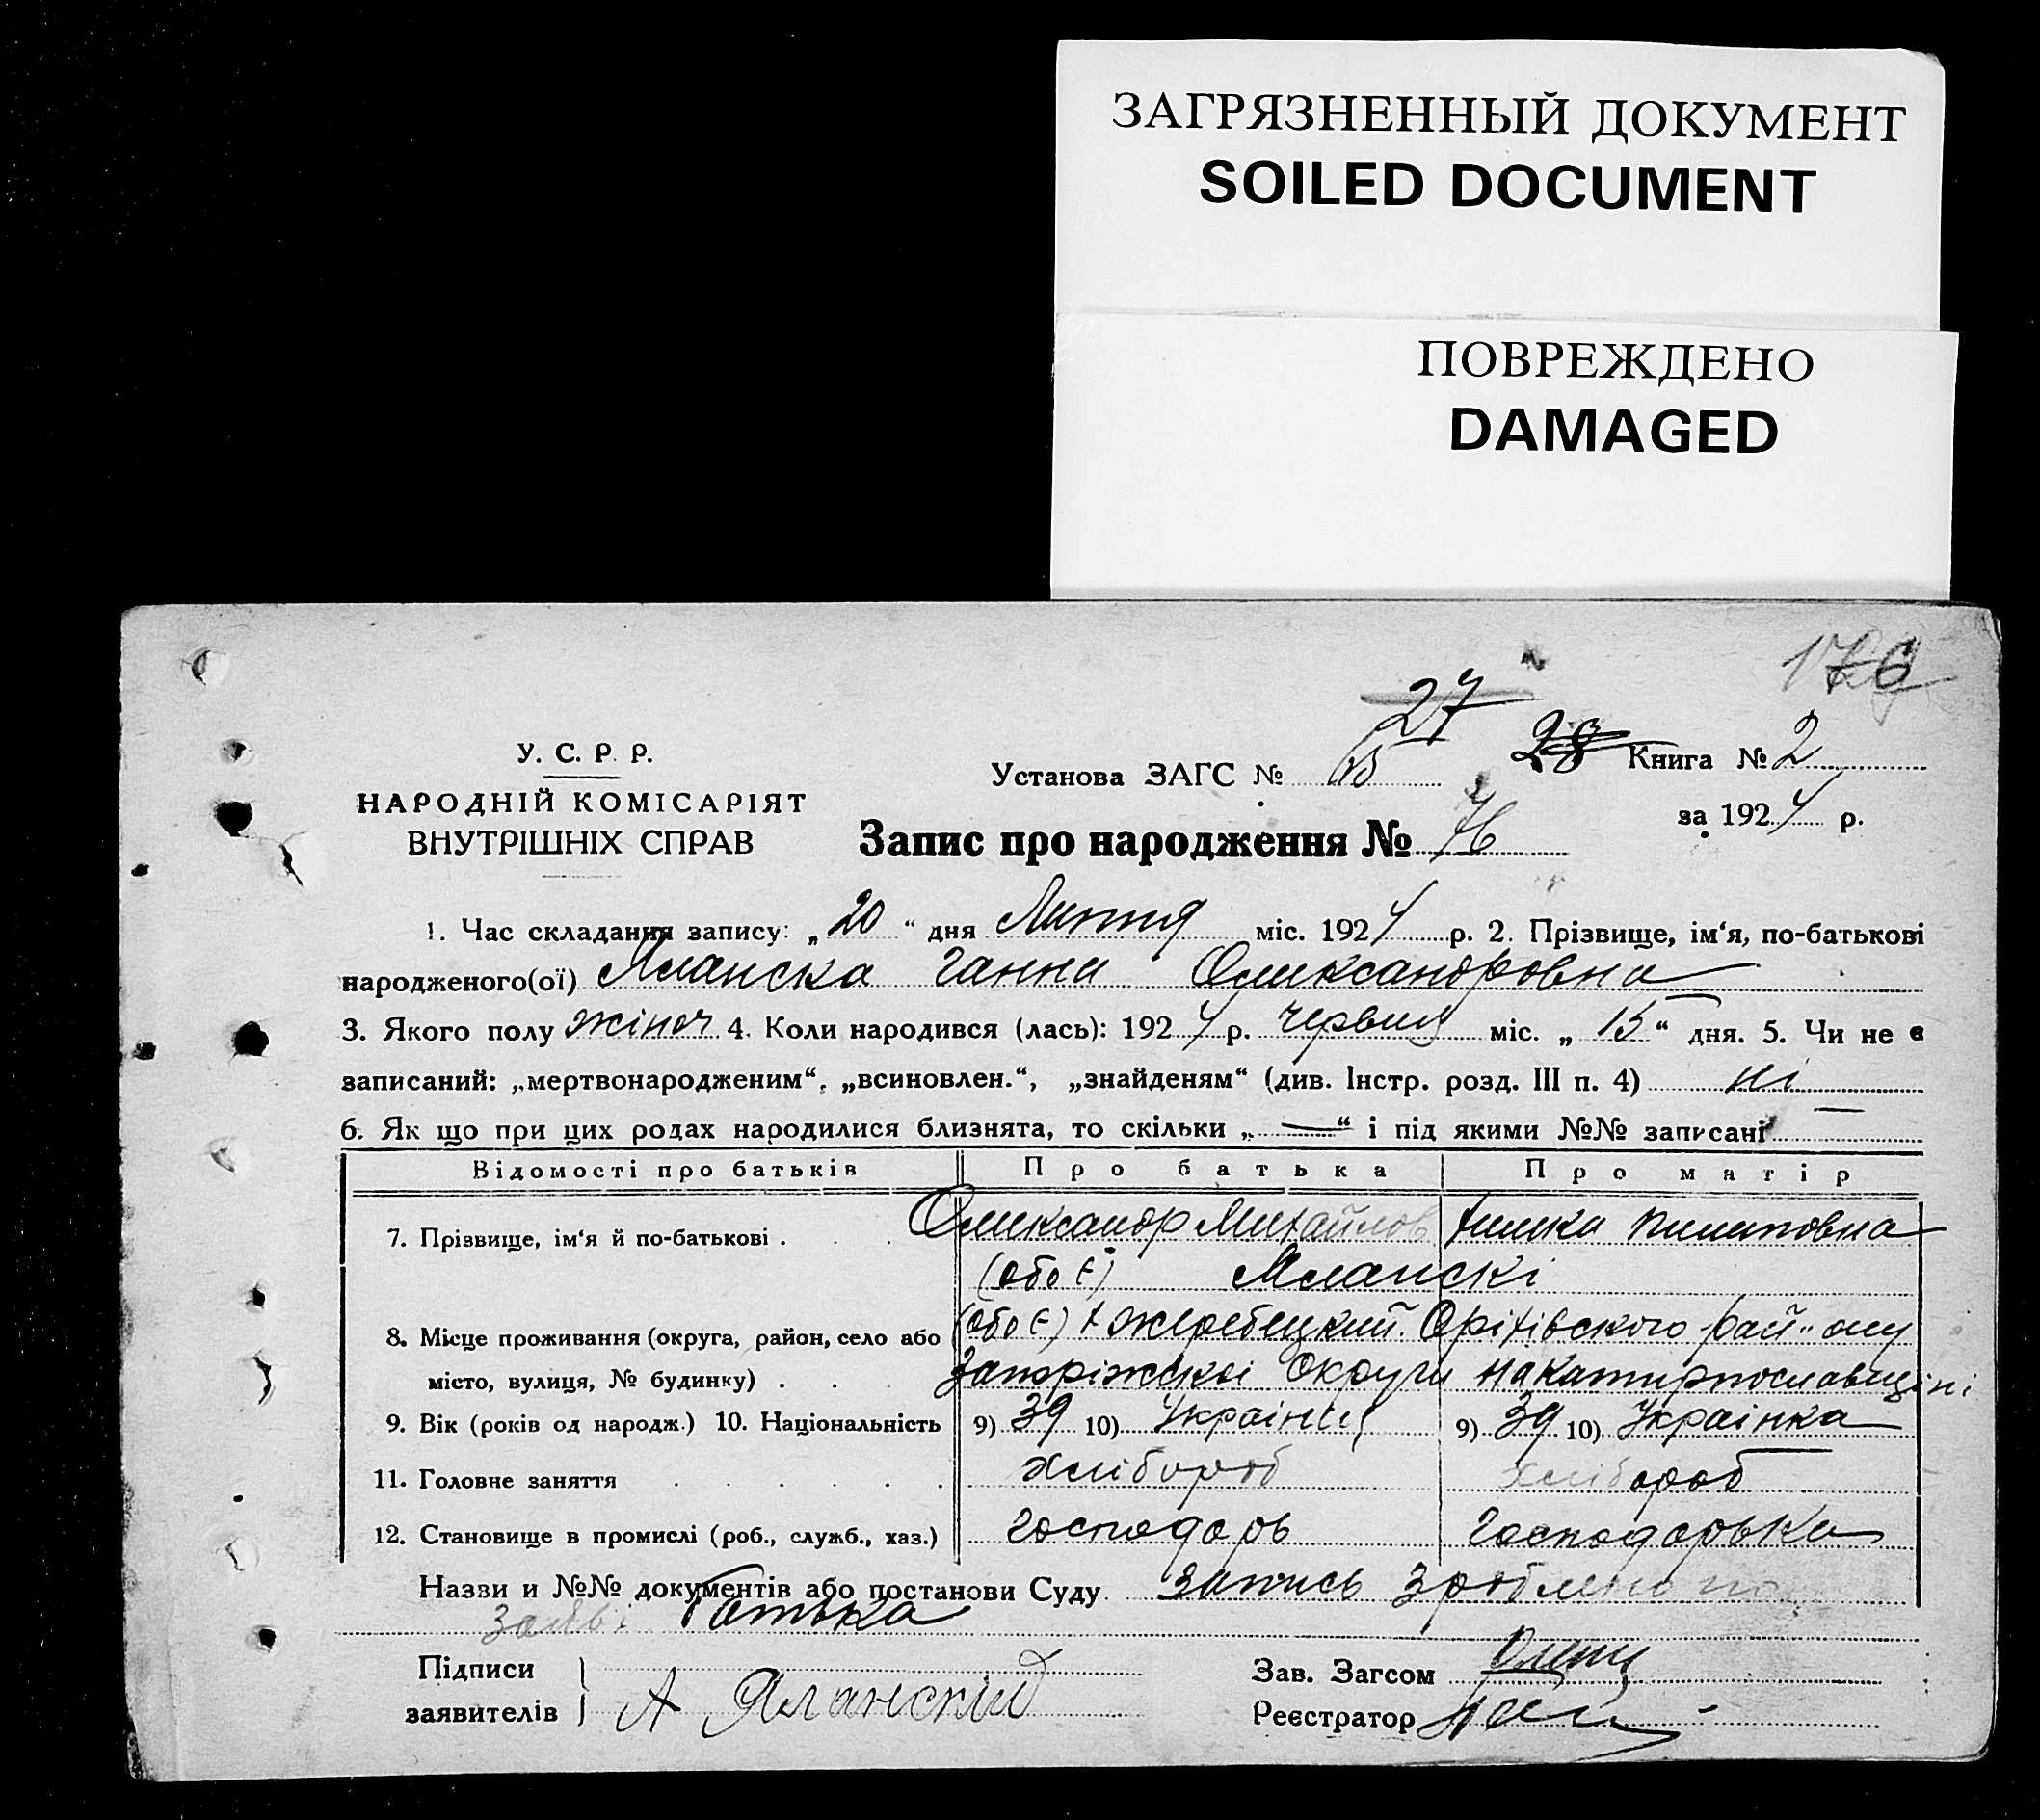 ЗАГРЯЗНЕННЫЙ ДОКУМЕНТ
SOILED DOCUMENT
ПОВРЕЖДЕНО
DAMAGED
176
27
У. С. Р. Р.
НАРОДНІЙ КОМІСАРІЯТ
ВНУТРІШНІХ СПРАВ
Установа ЗАГС № 28 Книга № 2
за 1924 р.
Запис про народження № 76
1. Час складання запису: „20“ дня Липня міс. 1924 р. 2. Прізвище, ім‘я, по-батькові
народженого(ої) Яланска Ганна Олександровна
3. Якого полу жіноч 4. Коли народився (лась): 1924 р. червня міс. „15“ дня. 5. Чи не є
записаний: „мертвонародженим“, „всиновлен.“, „знайденям“ (див. Інстр. розд. III п. 4) ні
6. Як що при цих родах народилися близнята, то скільки „—“ і під якими №№ записані —
Відомості про батьків Про батька Про матір
7. Прізвище, ім‘я й по-батькові . . . Олександр Михайлов Пилиповна
(обоє) Яланскі
8. Місце проживання (округа, район, село або (обоє) х Жеребецкий Оріхівского рай-ону
місто, вулиця, № будинку) . . . Запоріжскоі Округи на Катирнославщіні
9. Вік (років од народж.) 10. Національність 9) 39 10) Украінець 9) 39 10) Украінка
11. Головне заняття . . . . . . хлібороб хлібороб
12. Становище в промислі (роб., служб., хаз.) господарь господарька
Назви и №№ документів або постанови Суду запись зроблено по
заяві батька
Підписи
заявителів А Яланский
Зав. Загсом
Реєстратор